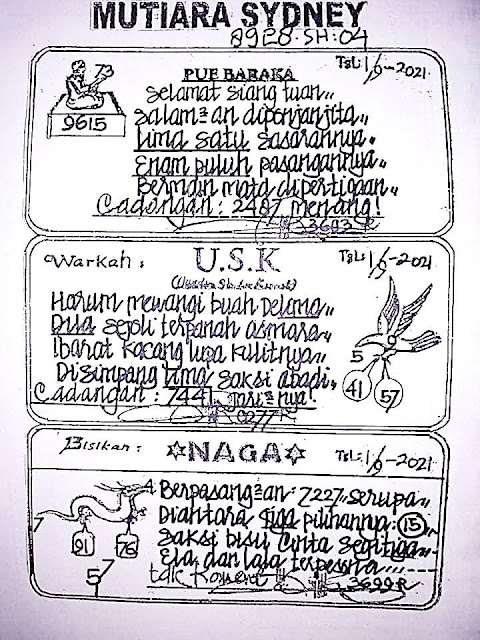 MUTIARA SYDNEY
8928-SH:04
Tgl: 1/9-2021
73
9615
PUE BARAKA
Selamat siang tuan,,
Salam²an dipenjanjita,,
Lima satu sasarannya.
Enam puluh pasangannya,,
Bermain mata dipertigaan,,
Cadangan: 2487 menang!
3603
Warkah:
U.S.K
Tgl: 1/9-2021
Harum mewangi buah Delima,,
Dua sejoli terpanah asmara,,
Ibarat kacang lupa kulitnya,,
Disimpang Lima saksi abadi,,
Cadangan: 7441
0277
5
41
57
Bisikan:
NAGA
Tgl: 1/9-2021
4
7
91
76
7
5
Berpasang²an: 7227,, serupa,,
Diantara tiga pilihannya: 15
Saksi bisu Cinta segitiga
Ela dan lala terpesona
3699